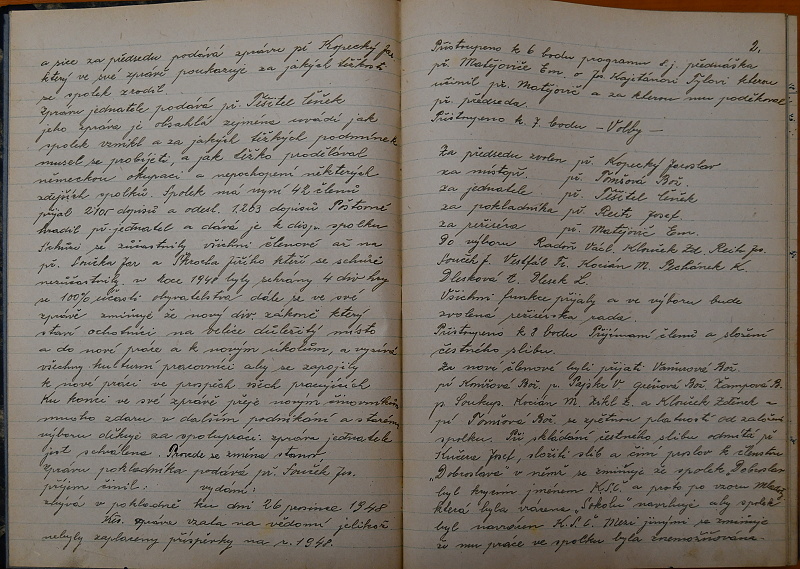 a sice za předsedu podává zprávu př. Kopecký Jar.
který ve své zprávě poukazuje za jakých těžkostí
se spolek zrodil.
Zprávu jednatele podává př. Těšitel Čeněk
jeho zpráva je obsáhlá zejména uvádí jak
spolek vznikl a za jakých těžkých podmínek
musel se probíjeti, a jak těžko prodělával
německou okupaci a nepochopení některých
zdejších spolků. Spolek má nyní 42 členů
přijal 2105 dopisů a odesl. 1.263 dopisů Poštovné
hradil př. jednatel a dává je k disp. spolku
Schůzí se zúčastnily všichni členové až na
př. Součka Jar a Škrocha Jiřího kteří se schůzí
nezúčastnily. v roce 1948 byly sehrány 4 div. hry
se 100% účastí obyvatelstva dále se ve své
zprávě zmiňuje že nový div. zákoně který
staví ochotníci na velice důležitý místo
a do nové práce a k novým úkolům, a vyzývá
všechny kulturní pracovníci aby se zapojily
k nové práci ve prospěch všech pracujících
Ku konci ve své zprávě přeje novým činovníkům
mnoho zdaru v dalším podnikání a starému
výboru děkuje za spolupráci: zpráva jednatele
jest schválena.
Zprávu pokladníka podává př. Souček Jos.
příjem činil: vydání:
zbývá v pokladně ku dni 26 prosince 1948
Kčs. zpráva vzata na vědomí jelikož
nebyly zaplaceny příspěvky na r. 1948.
2.
Přistoupeno k 6 bodu programu t.j. přednáška
př. Matějoviče Em. o Jos. Kajetánovi Tylovi kterou
učinil př. Matějovič a za kterou mu poděkoval
př. předseda.
Přistoupeno k 7. bodu - Volby -
Za předsedu zvolen př. Kopecký Jaroslav
za místopř. př. Tomšová Bož.
za jednatele př. Těšitel Čeněk
za pokladníka př. Reitz Josef
za režiséra př. Matějovič Em.
Do výboru Radoň Václ. Klouček Zd. Reitz Jos.
Souček J. Vestfál Fr. Kocián M. K.
Blesková A. Blesek L.
Všichni funkce přijaly a ve výboru bude
zvolena režisérská rada.
Přistoupeno k 8 bodu Přijímání členů a složení
čestného slibu.
Za nové členové byli přijati Vaňurová Bož.
př Bož. p. V Bož. Žampová B.
p. Soukup. Kocián M. Z. a Klouček Zdeněk a
př Tomšová Bož. se zpětnou platností od založení
spolku. Při skládání čestného slibu odmítá př
Kučera Josef, složiti slib a činí proslov k členstvu
„Dobroslava" v němž se zmiňuje že spolek Dobroslav
byl krycím jménem K.S.Č a proto po vzoru Mládeže
která byla vázana „Sokolu" navrhuje aby spolek
byl navrácen K.S.Č. Mezi jinými se zmiňuje
že mu práce ve spolku byla znemožňována.